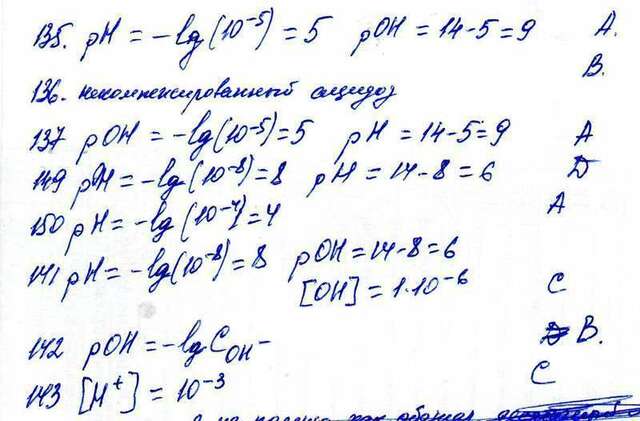 135. pH = -lg(10⁻⁵) = 5 pOH = 14-5 = 9 A.
136. некомпенсированный ацидоз B.
137 pOH = -lg(10⁻⁵) = 5 pH = 14-5 = 9 A
149 pOH = -lg(10⁻⁸) = 8 pH = 14-8 = 6 D
150 pH = -lg(10⁻⁴) = 4 A
141 pH = -lg(10⁻⁸) = 8 pOH = 14-8 = 6
[OH] = 1·10⁻⁶ C
142 pOH = -lg C_OH⁻ B.
143 [H⁺] = 10⁻³ C